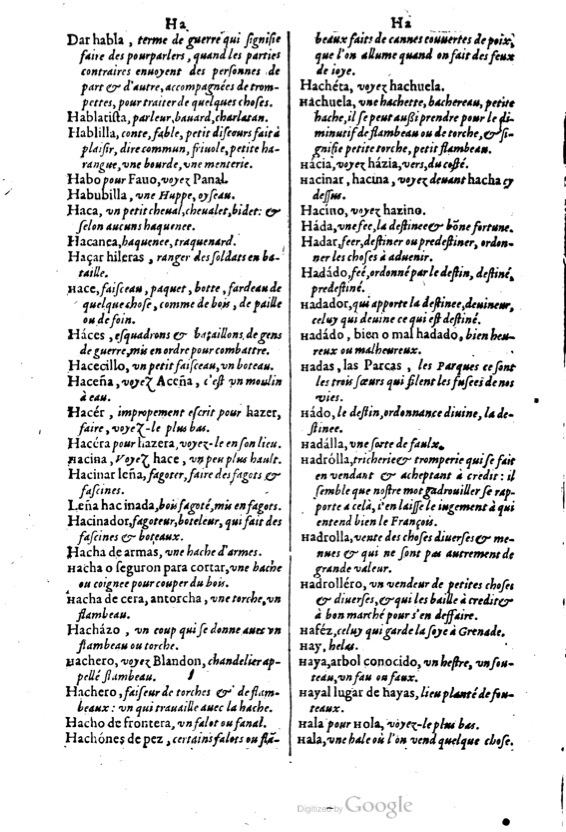 Ha
Dar habla, terme de guerre qui signifie
faire des pourparlers, quand les parties
contraires enuoyent des personnes de
part & d'autre, accompagnées de trom-
pettes, pour traiter de quelques choses.
Hablatista, parleur, bauard, charlatan.
Hablilla, conte, fable, petit discours fait à
plaisir, dire commun, friuole, petite ha-
rangue, vne bourde, vne menterie.
Habo pour Fauo, voyez Panal.
Habubilla, vne Huppe, oyseau.
Haca, vn petit cheual, cheualet, bidet: &
selon aucuns haquenee.
Hacanea, haquenee, traquenard.
Haçar hileras, ranger des soldats en ba-
taille.
Hace, faisceau, paquet, botte, fardeau de
quelque chose, comme de bois, de paille
ou de foin.
Háces, esquadrons & bataillons de gens
de guerre, mis en ordre pour combattre.
Hacecillo, vn petit faisceau, vn boteau.
Haceña, voyez Aceña, c'est vn moulin
à eau.
Hacér, impropement escrit pour hazer,
faire, voyez-le plus bas.
Hacéra pour hazera, voyez-le en son lieu.
Hacina, Voyez hace, vn peu plus hault.
Hacinar leña, fagoter, faire des fagots &
fascines.
Leña hacinada, bois fagoté, mis en fagots.
Hacinador, fagoteur, boteleur, qui fait des
fascines & boteaux.
Hacha de armas, vne hache d'armes.
Hacha o seguron para cortar, vne hache
ou coignee pour couper du bois.
Hacha de cera, antorcha, vne torche, vn
flambeau.
Hacházo, vn coup qui se donne auec vn
flambeau ou torche.
Hachero, voyez Blandon, chandelier ap-
pellé flambeau.
Hachero, faiseur de torches & de flam-
beaux: vn qui trauaille auec la hache.
Hacho de frontera, vn falot ou fanal.
Hachónes de pez, certains falots ou flā-
Ha
beaux faits de cannes couuertes de poix,
que l'on allume quand on fait des feux
de ioye.
Hachéta, voyez hachuela.
Háchuela, vne hachette, hachereau, petite
hache, il se peut aussi prendre pour le di-
minutif de flambeau ou de torche, & si-
gnifie petite torche, petit flambeau.
Hácia, voyez házia, vers, du costé.
Hacinar, hacina, voyez deuant hacha cy
dessus.
Hacino, voyez hazino.
Háda, vne fee, la destinee & bōne fortune.
Hadar, feer, destiner ou predestiner, ordon-
ner les choses à aduenir.
Hadádo, feé, ordonné par le destin, destiné,
predestiné.
Hadador, qui apporte la destinee, deuineur,
celuy qui deuine ce qui est destiné.
Hadádo, bien o mal hadado, bien heu-
reux ou malheureux.
Hadas, las Parcas, les Parques ce sont
les trois sœurs qui filent les fusees de nos
vies.
Hádo, le destin, ordonnance diuine, la de-
stinee.
Hadálla, vne sorte de faulx.
Hadrólla, tricherie & tromperie qui se fait
en vendant & acheptant à credit: il
semble que nostre mot gadrouiller se rap-
porte a celà, i'en laisse le iugement à qui
entend bien le François.
Hadrolla, vente des choses diuerses & me-
nues & qui ne sont pas autrement de
grande valeur.
Hadrolléro, vn vendeur de petites choses
& diuerses, & qui les baille à credit &
à bon marché pour s'en deffaire.
Haféz, celuy qui garde la soye à Grenade.
Hay, helas.
Haya, arbol conocido, vn hestre, vn fou-
teau, vn fau ou faux.
Hayal lugar de hayas, lieu planté de fou-
teaux.
Hala pour Hola, voyez-le plus bas.
Hala, vne hale où l'on vend quelque chose.
Digitized by Google